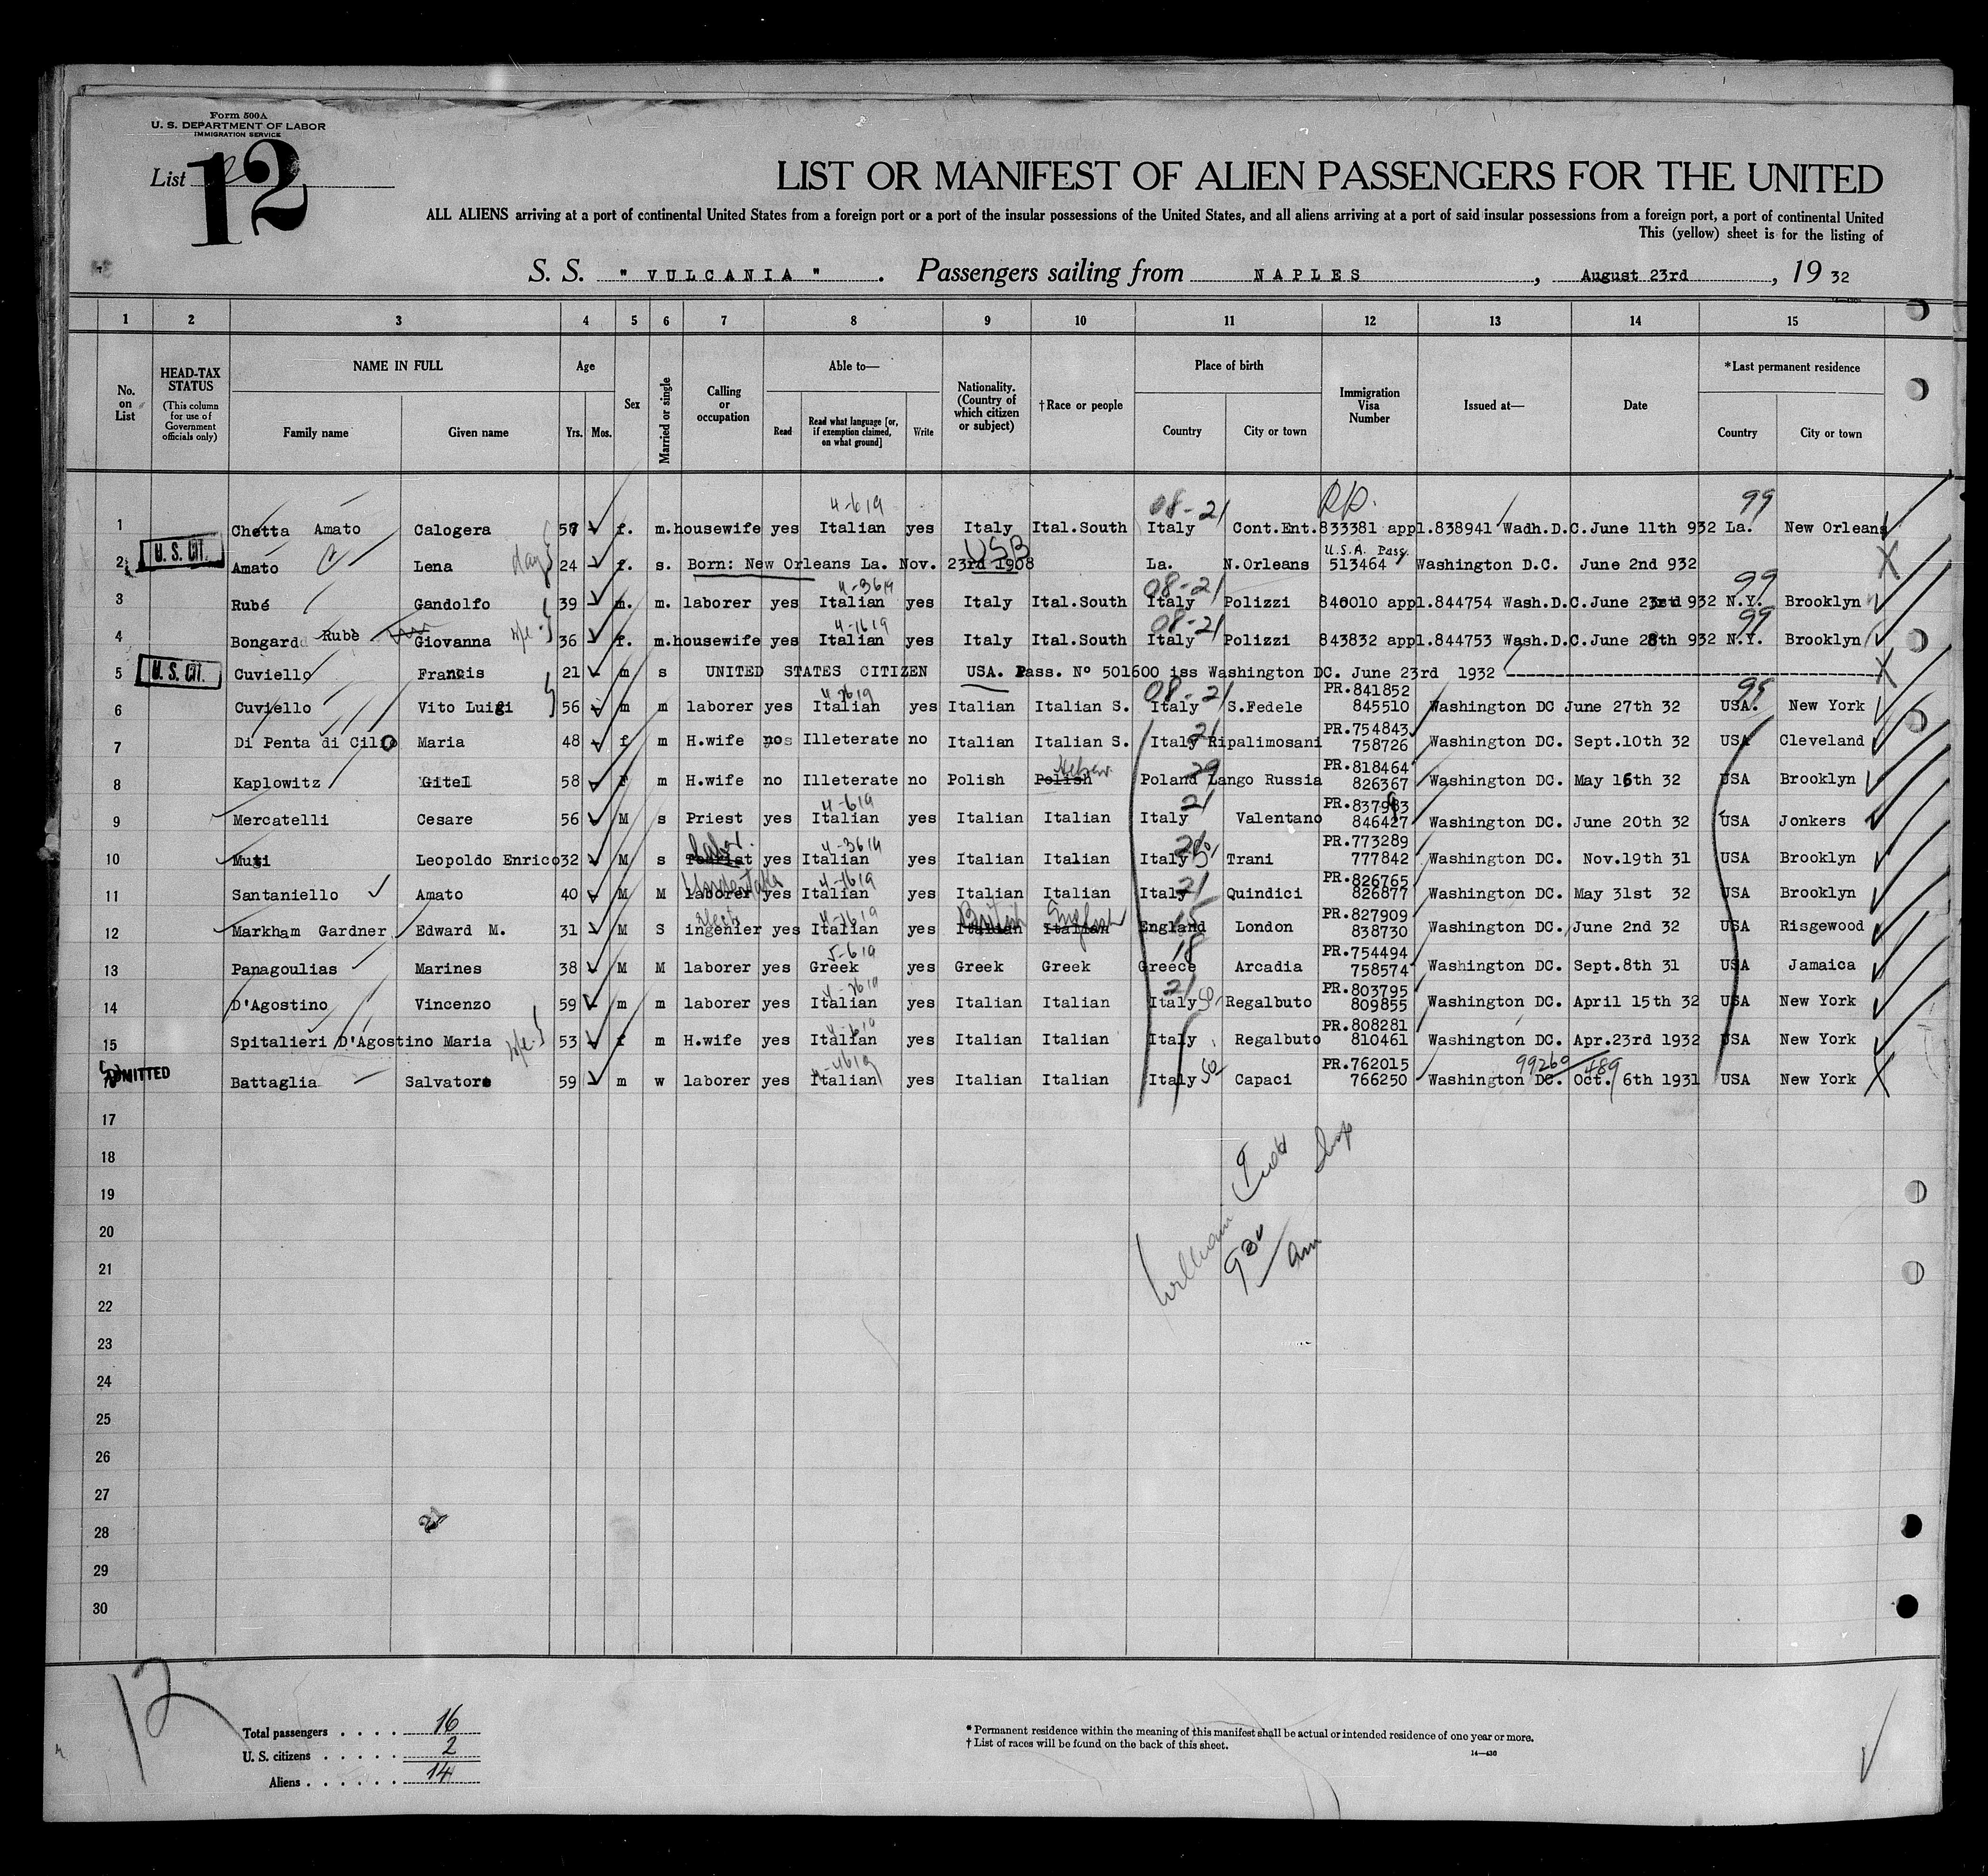 Form 500A
U. S. DEPARTMENT OF LABOR
IMMIGRATION SERVICE
List 12
LIST OR MANIFEST OF ALIEN PASSENGERS FOR THE UNITED
ALL ALIENS arriving at a port of continental United States from a foreign port or a port of the insular possessions of the United States, and all aliens arriving at a port of said insular possessions from a foreign port, a port of continental United
This (yellow) sheet is for the listing of
S. S. " VULCANIA " . Passengers sailing from NAPLES , August 23rd , 19 32
1 2 3 4 5 6 7 8 9 10 11 12 13 14 15
No. on List
HEAD-TAX STATUS (This column for use of Government officials only)
NAME IN FULL Family name Given name
Age Yrs. Mos.
Sex
Married or single
Calling or occupation
Able to— Read Read what language [or, if exemption claimed, on what ground] Write
Nationality. (Country of which citizen or subject)
†Race or people
Place of birth Country City or town
Immigration Visa Number
Issued at—
Date
*Last permanent residence Country City or town
4-619 08-21 99
1 Chetta Amato Calogera f. m. housewife yes Italian yes Italy Ital.South Italy Cont.Ent. 833381 appl.838941 Wadh.D.C. June 11th 932 La. New Orleans
U. S. CIT. USB U.S.A. Pass.
2 Amato Lena 24 f. s. Born: New Orleans La. Nov. 23rd 1908 La. N.Orleans 513464 Washington D.C. June 2nd 932
4-3619 08-21 99
3 Rubé Gandolfo 39 m. m. laborer yes Italian yes Italy Ital.South Italy Polizzi 840010 appl.844754 Wash.D.C. June 23rd 932 N.Y. Brooklyn
4-1619 08-21 99
4 Bongard Rubè Giovanna 36 f. m. housewife yes Italian yes Italy Ital.South Italy Polizzi 843832 appl.844753 Wash.D.C. June 28th 932 N.Y. Brooklyn
U. S. CIT.
5 Cuviello Francis 21 m s UNITED STATES CITIZEN USA. Pass. Nº 501600 iss Washington DC. June 23rd 1932
08-21 PR.841852
6 Cuviello Vito Luigi 56 m m laborer yes Italian yes Italian Italian S. Italy S.Fedele 845510 Washington DC June 27th 32 USA. New York
21 PR.754843
7 Di Penta di Cilio Maria 48 f m H.wife no Illeterate no Italian Italian S. Italy Ripalimosani 758726 Washington DC. Sept.10th 32 USA Cleveland
Hebrew PR.818464
8 Kaplowitz Gitel 58 F m H.wife no Illeterate no Polish Polish Poland Lango Russia 826367 Washington DC. May 16th 32 USA Brooklyn
4-619 21
9 Mercatelli Cesare 56 M s Priest yes Italian yes Italian Italian Italy Valentano 846427 Washington DC. June 20th 32 USA Jonkers
PR.773289
10 Muti Leopoldo Enrico 32 M s Tourist yes Italian yes Italian Italian Italy Trani 777842 Washington DC. Nov.19th 31 USA Brooklyn
4-1619 21 PR.826765
11 Santaniello Amato 40 M M laborer yes Italian yes Italian Italian Italy Quindici 826877 Washington DC. May 31st 32 USA Brooklyn
British English PR.827909
12 Markham Gardner Edward M. 31 M S ingenier yes Italian yes Italian Italian England London 838730 Washington DC. June 2nd 32 USA Risgewood
5-619 18 PR.754494
13 Panagoulias Marines 38 M M laborer yes Greek yes Greek Greek Greece Arcadia 758574 Washington DC. Sept.8th 31 USA Jamaica
21 PR.803795
14 D'Agostino Vincenzo 59 m m laborer yes Italian yes Italian Italian Italy So. Regalbuto 809855 Washington DC. April 15th 32 USA New York
PR.808281
15 Spitalieri D'Agostino Maria 53 f m H.wife yes Italian yes Italian Italian Italy Regalbuto 810461 Washington DC. Apr.23rd 1932 USA New York
ADMITTED PR.762015 99260/489
Battaglia Salvatore 59 m w laborer yes Italian yes Italian Italian Italy So Capaci 766250 Washington DC. Oct. 6th 1931 USA New York
17
18
19
20
21
22
23
24
25
26
27
28
29
30
William
930 am
12
Total passengers . . . . 16
U. S. citizens . . . . . 2
Aliens . . . . . . 14
* Permanent residence within the meaning of this manifest shall be actual or intended residence of one year or more.
† List of races will be found on the back of this sheet.
14—430